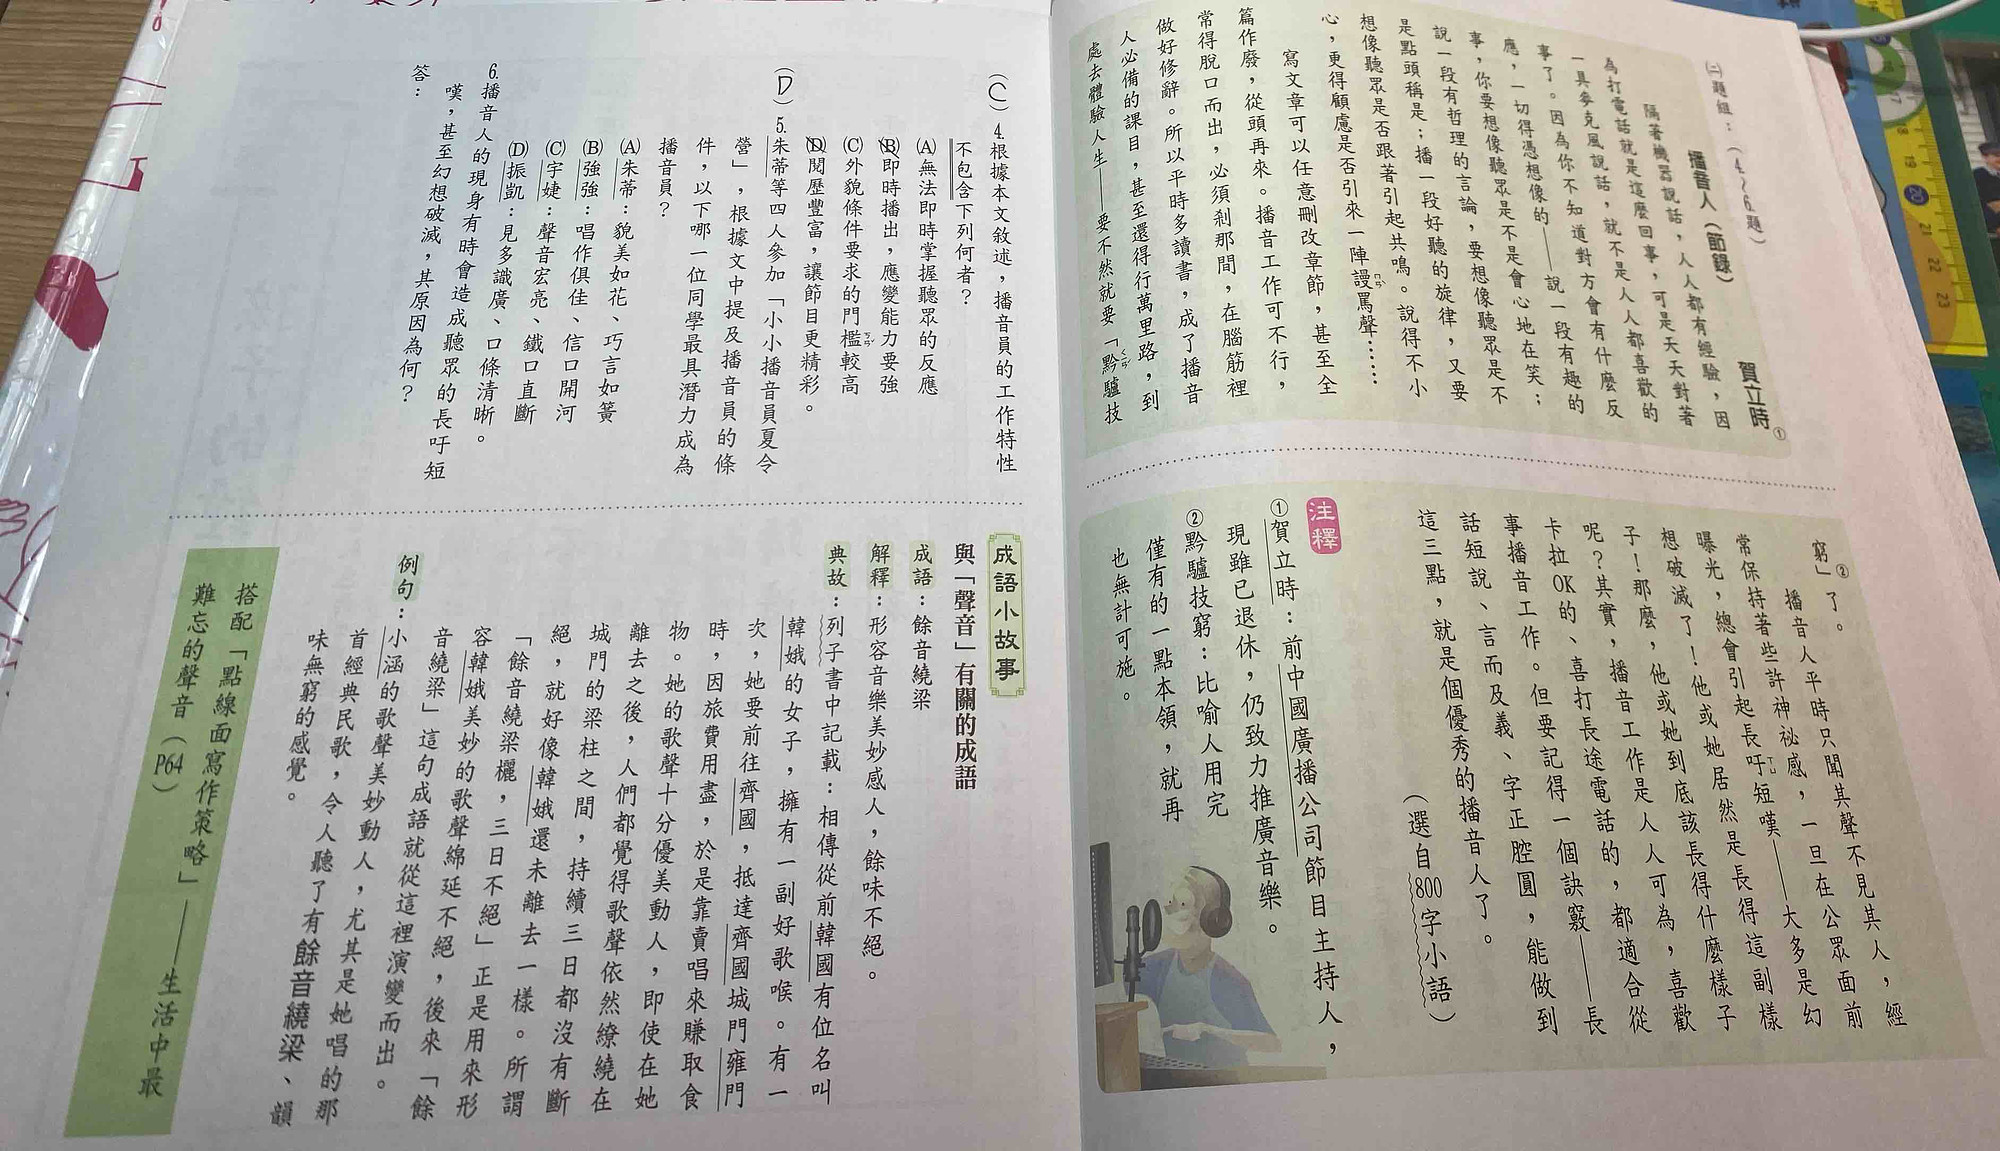 ㈡題組：（4～6題）
播音人（節錄）　賀立時①
隔著機器說話，人人都有經驗，因
為打電話就是這麼回事，可是天天對著
一具麥克風說話，就不是人人都喜歡的
事了。因為你不知道對方會有什麼反
應，一切得憑想像的——說一段有趣的
事，你要想像聽眾是不是會心地在笑；
說一段有哲理的言論，要想像聽眾是不
是點頭稱是；播一段好聽的旋律，又要
想像聽眾是否跟著引起共鳴。說得不小
心，更得顧慮是否引來一陣謾罵聲……
寫文章可以任意刪改章節，甚至全
篇作廢，從頭再來。播音工作可不行，
常得脫口而出，必須剎那間，在腦筋裡
做好修辭。所以平時多讀書，成了播音
人必備的課目，甚至還得行萬里路，到
處去體驗人生——要不然就要「黔驢技
窮」②了。
播音人平時只聞其聲不見其人，經
常保持著些許神祕感，一旦在公眾面前
曝光，總會引起長吁短嘆——大多是幻
想破滅了！他或她居然是長得這副樣
子！那麼，他或她到底該長得什麼樣子
呢？其實，播音工作是人人可為，喜歡
卡拉OK的、喜打長途電話的，都適合從
事播音工作。但要記得一個訣竅——長
話短說、言而及義、字正腔圓，能做到
這三點，就是個優秀的播音人了。
（選自800字小語）
注釋
①賀立時：前中國廣播公司節目主持人，
現雖已退休，仍致力推廣音樂。
②黔驢技窮：比喻人用完
僅有的一點本領，就再
也無計可施。
（C）4.根據本文敘述，播音員的工作特性
不包含下列何者？
(A)無法即時掌握聽眾的反應
(B)即時播出，應變能力要強
(C)外貌條件要求的門檻較高
(D)閱歷豐富，讓節目更精彩。
（D）5.朱蒂等四人參加「小小播音員夏令
營」，根據文中提及播音員的條
件，以下哪一位同學最具潛力成為
播音員？
(A)朱蒂：貌美如花、巧言如簧
(B)強強：唱作俱佳、信口開河
(C)宇婕：聲音宏亮、鐵口直斷
(D)振凱：見多識廣、口條清晰。
6.播音人的現身有時會造成聽眾的長吁短
嘆，甚至幻想破滅，其原因為何？
答：
成語小故事
與「聲音」有關的成語
成語：餘音繞梁
解釋：形容音樂美妙感人，餘味不絕。
典故：列子書中記載：相傳從前韓國有位名叫
韓娥的女子，擁有一副好歌喉。有一
次，她要前往齊國，抵達齊國城門雍門
時，因旅費用盡，於是靠賣唱來賺取食
物。她的歌聲十分優美動人，即使在她
離去之後，人們都覺得歌聲依然繚繞在
城門的梁柱之間，持續三日都沒有斷
絕，就好像韓娥還未離去一樣。所謂
「餘音繞梁欐，三日不絕」正是用來形
容韓娥美妙的歌聲綿延不絕，後來「餘
音繞梁」這句成語就從這裡演變而出。
例句：小涵的歌聲美妙動人，尤其是她唱的那
首經典民歌，令人聽了有餘音繞梁、韻
味無窮的感覺。
搭配「點線面寫作策略」——生活中最
難忘的聲音（P64）